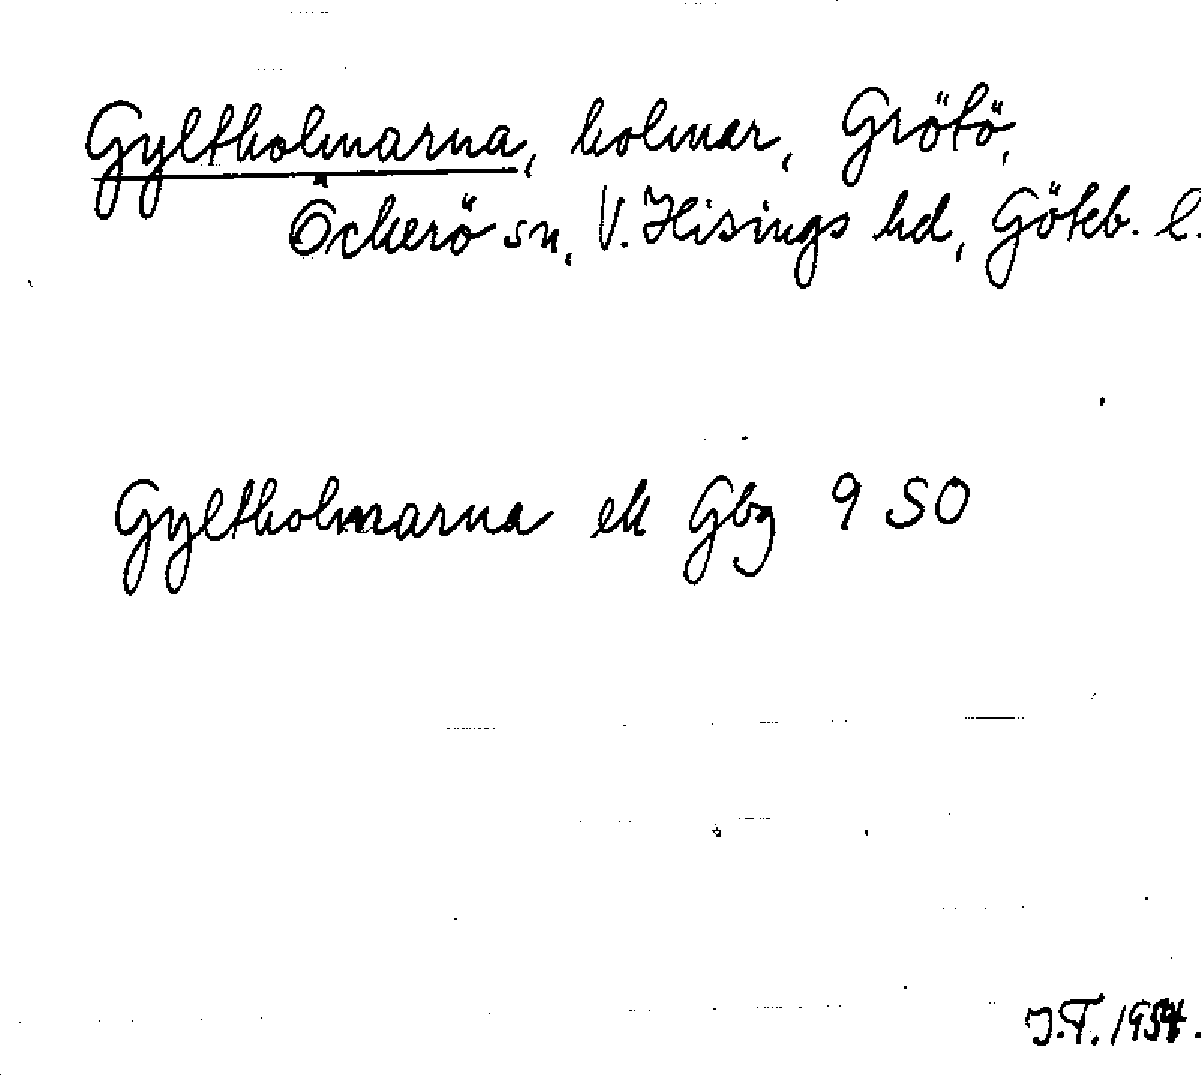 Gyltholmarna, holmar, Grötö,
Öckerö sn, V. Hisings hd, Göteb. l.
Gyltholmarna ek Gbg 9 SO
J.T. 1954.